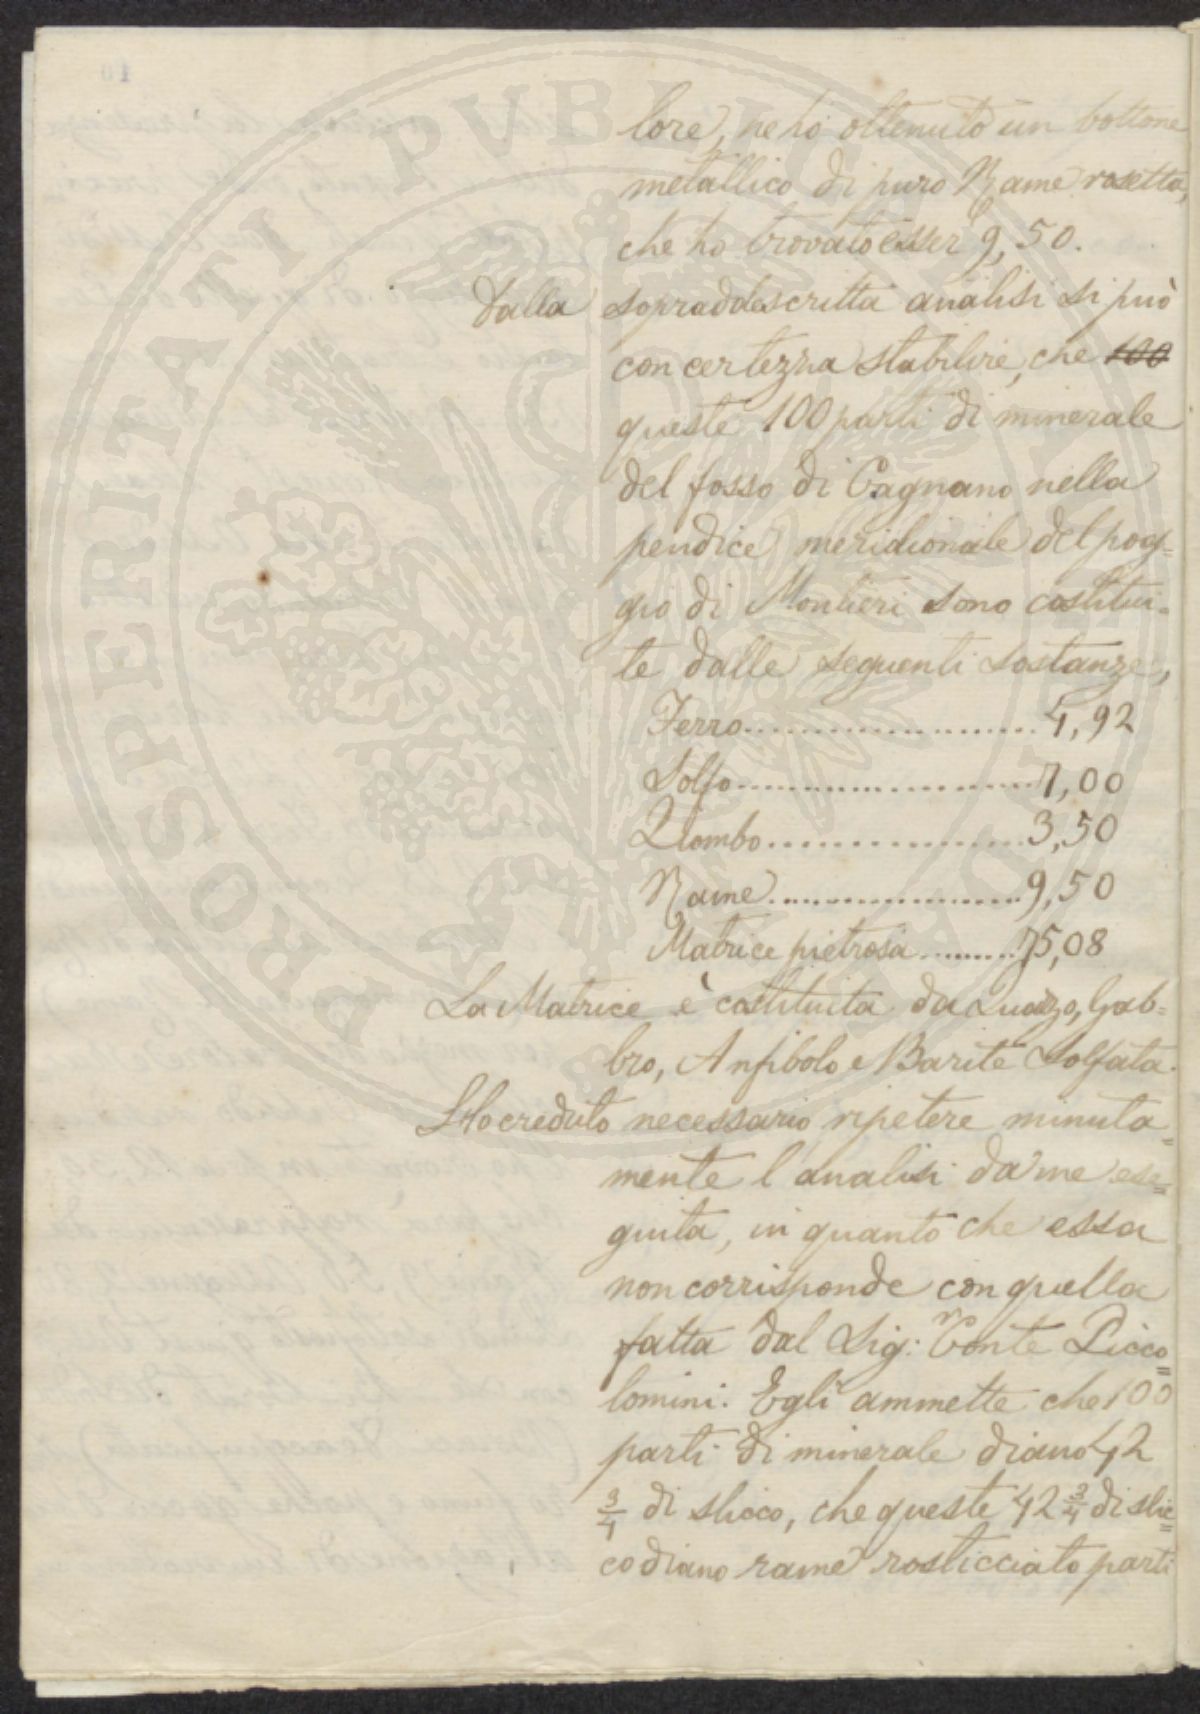 lore, ne ho ottenuto un bottone
metallico di puro Rame rosetta,
che ho trovato esser 9,50.
Dalla sopraddescritta analisi si può
con certezza stabilire, che 100
queste 100 parti di minerale
del fosso di Cagnano nella
pendice meridionale del pog=
gio di Montieri sono costitui=
te dalle seguenti sostanze,
Ferro.................... 4,92
Solfo.................... 7,00
Piombo.................... 3,50
Rame.................... 9,50
Matrice pietrosa......... 75,08
La Matrice è costituita da Quarzo, Gab=
bro, Anfibolo e Barite Solfata.
Ho creduto necessario ripetere minuta=
mente l analisi da me ese=
guita, in quanto che essa
non corrisponde con quella
fatta dal Sig:r Conte Picco=
lomini. Egli ammette che 100
parti di minerale diano 42
3/4 di slicco, che queste 42 3/4 di slic=
co diano rame rosticciato parti
PROSPERITATI PVBLICAE